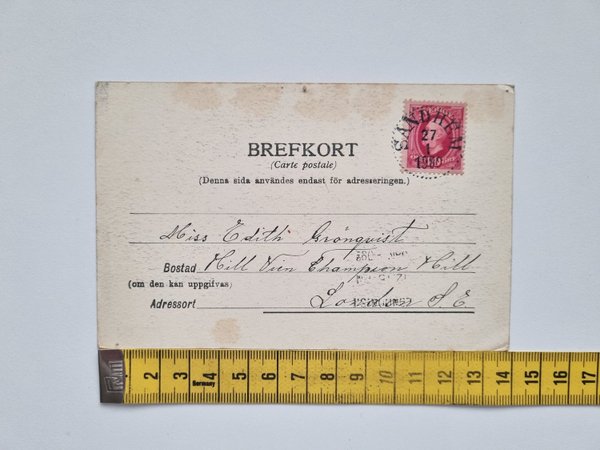 BREFKORT
(Carte postale)
(Denna sida användes endast för adresseringen.)
SANDHEM
27
1
Miss Edith Grönqvist
Bostad Hill View Champion Hill
(om den kan uppgifvas)
Adressort London S.E.
2 3 4 5 6 7 8 9 10 11 12 13 14 15 16 17
Germany